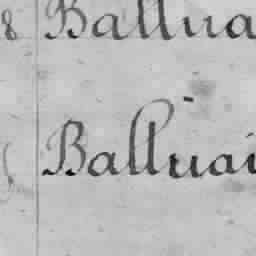 8 Balluai
Balluai